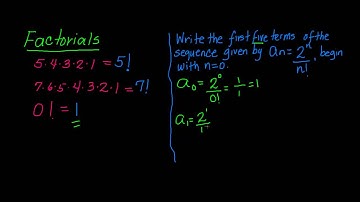 Factorials
5·4·3·2·1 = 5!
7·6·5·4·3·2·1 = 7!
0! = 1
Write the first five terms of the
sequence given by aₙ = 2ⁿ/n!, begin
with n=0.
a₀ = 2⁰/0! = 1/1 = 1
a₁ = 2¹/1